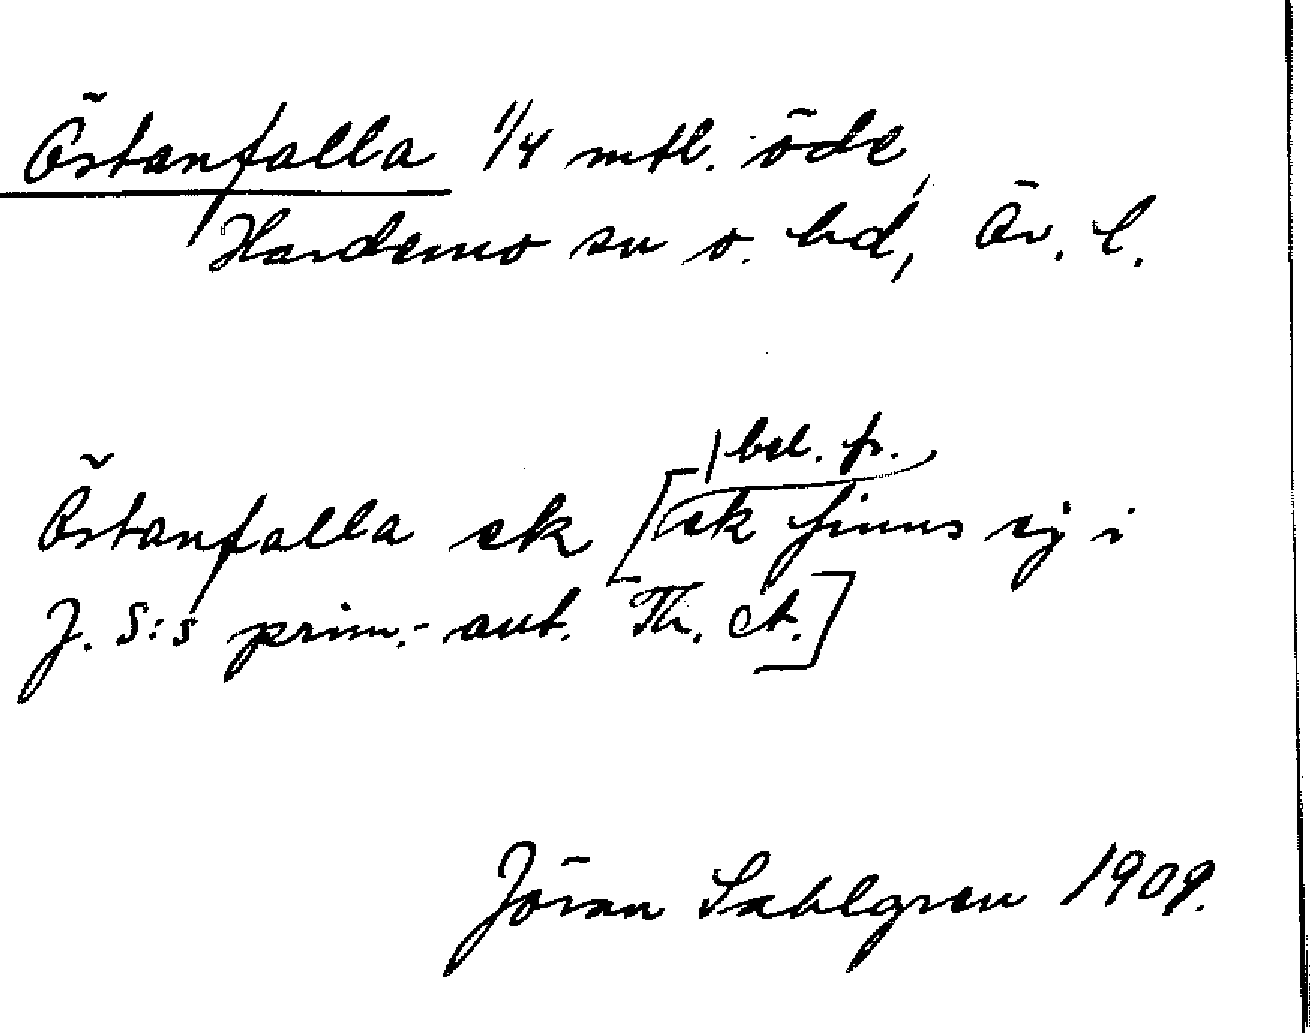 Östanfalla 1/4 mtl. öde,
Hardemo sn o. hd, Ör. l.
bd. fr.
Östanfalla ek [ek finns ej i
J. S:s prim.- aut. Th. A.]
Jöran Sahlgren 1909.